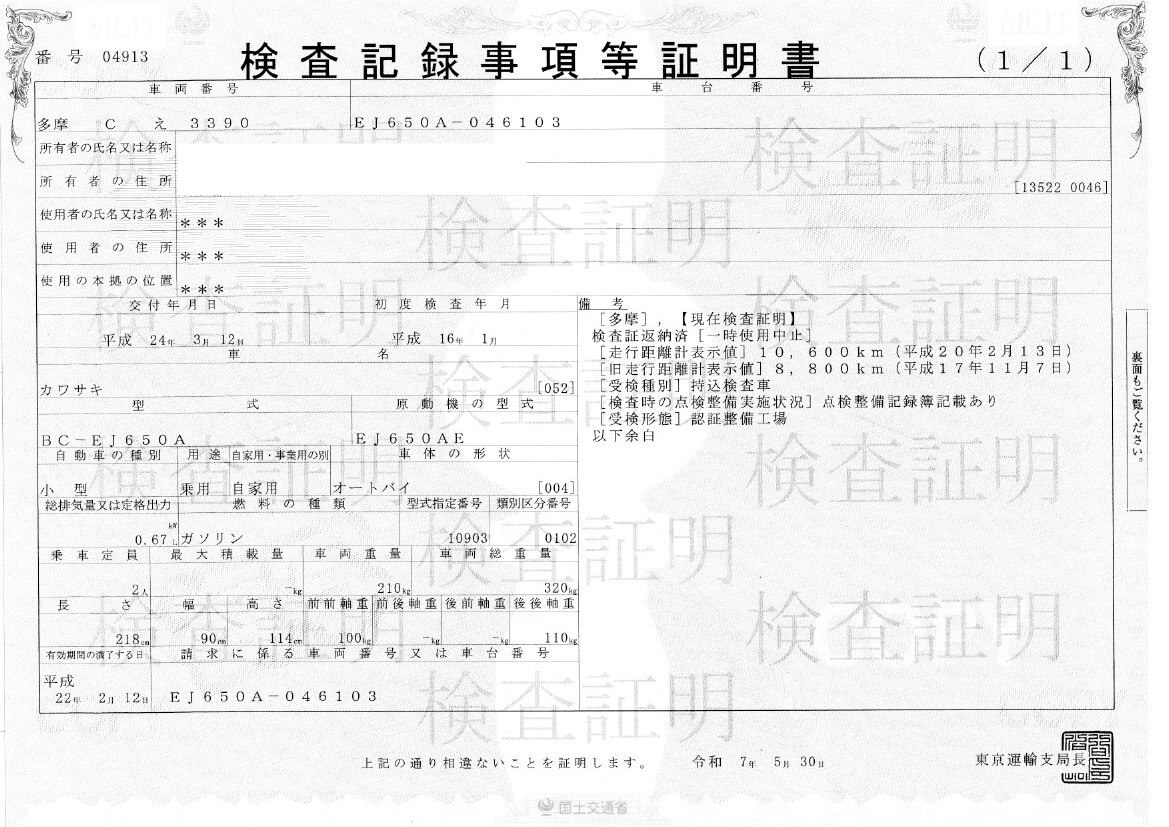 番号 04913
検査記録事項等証明書
(1/1)
車両番号 車台番号
多摩 C え 3390 EJ650A-046103
所有者の氏名又は名称
所有者の住所
[13522 0046]
使用者の氏名又は名称 ***
使用者の住所 ***
使用の本拠の位置 ***
交付年月日 初度検査年月 備考
平成 24年 3月 12日 平成 16年 1月
車名
カワサキ [052]
型式 原動機の型式
BC-EJ650A EJ650AE
自動車の種別 用途 自家用・事業用の別 車体の形状
小型 乗用 自家用 オートバイ [004]
総排気量又は定格出力 燃料の種類 型式指定番号 類別区分番号
kW
0.67 L ガソリン 10903 0102
乗車定員 最大積載量 車両重量 車両総重量
2人 -kg 210kg 320kg
長さ 幅 高さ 前前軸重 前後軸重 後前軸重 後後軸重
218cm 90cm 114cm 100kg -kg -kg 110kg
有効期間の満了する日 請求に係る車両番号又は車台番号
平成
22年 2月 12日 EJ650A-046103
[多摩],【現在検査証明】
検査証返納済[一時使用中止]
[走行距離計表示値]10,600km(平成20年2月13日)
[旧走行距離計表示値]8,800km(平成17年11月7日)
[受検種別]持込検査車
[検査時の点検整備実施状況]点検整備記録簿記載あり
[受検形態]認証整備工場
以下余白
裏面もご覧ください。
上記の通り相違ないことを証明します。 令和 7年 5月 30日 東京運輸支局長
国土交通省
検査証明
検査証明
検査証明
検査証明
検査証明
検査証明
検査証明
検査証明
検査証明
検査証明
検査証明
検査証明